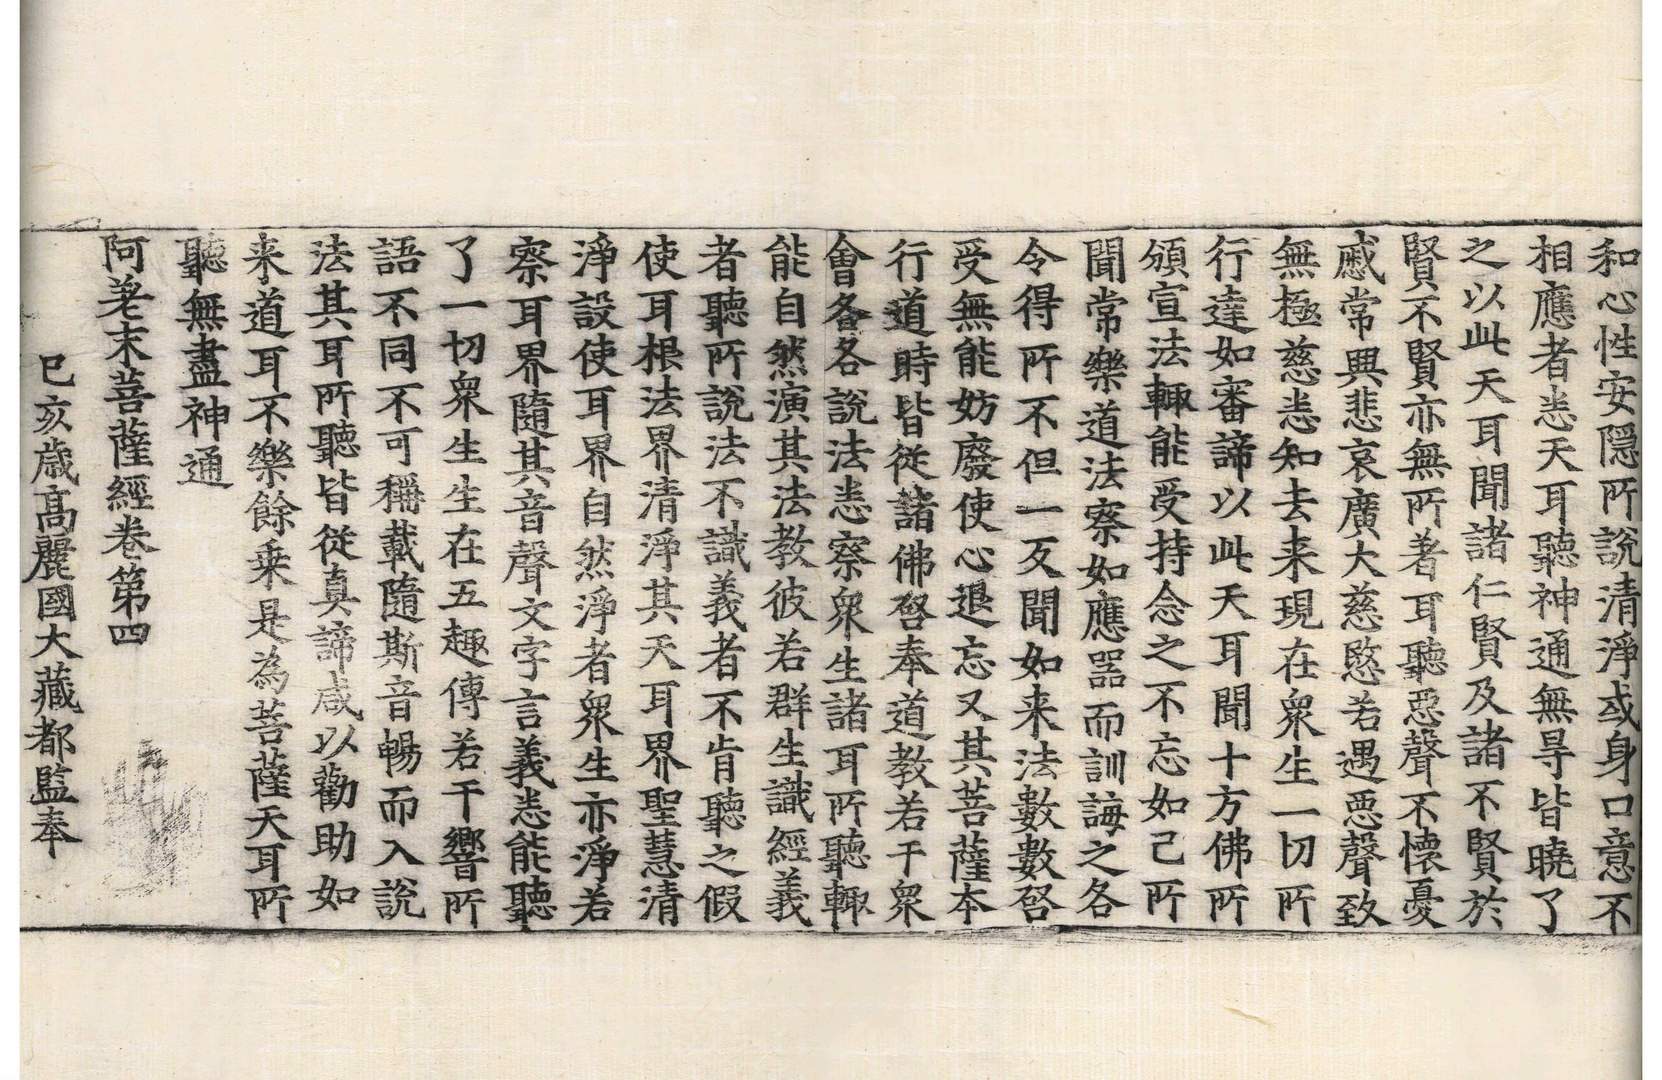 和心性安隱所說清淨或身口意不
相應者悉天耳聽神通無㝵皆曉了
之以此天耳聞諸仁賢及諸不賢於
賢不賢亦無所著耳聽惡聲不懷憂
慼常興悲哀廣大慈愍若遇惡聲致
無極慈悉知去来現在衆生一切所
行達如審諦以此天耳聞十方佛所
頒宣法輙能受持念之不忘如己所
聞常樂道法察如應器而訓誨之各
令得所不但一反聞如来法數數啓
受無能妨廢使心退忘又其菩薩本
行道時皆從諸佛啓奉道教若干衆
會各各說法悉察衆生諸耳所聽輙
能自然演其法教彼若群生識經義
者聽所說法不識義者不肯聽之假
使耳根法界清淨其天耳界聖慧清
淨設使耳界自然淨者衆生亦淨若
察耳界隨其音聲文字言義悉能聽
了一切衆生生在五趣傳若干響所
語不同不可稱載隨斯音暢而入說
法其耳所聽皆從真諦咸以勸助如
来道耳不樂餘乗是為菩薩天耳所
聽無盡神通
阿差末菩薩經卷第四
己亥歳高麗國大藏都監奉